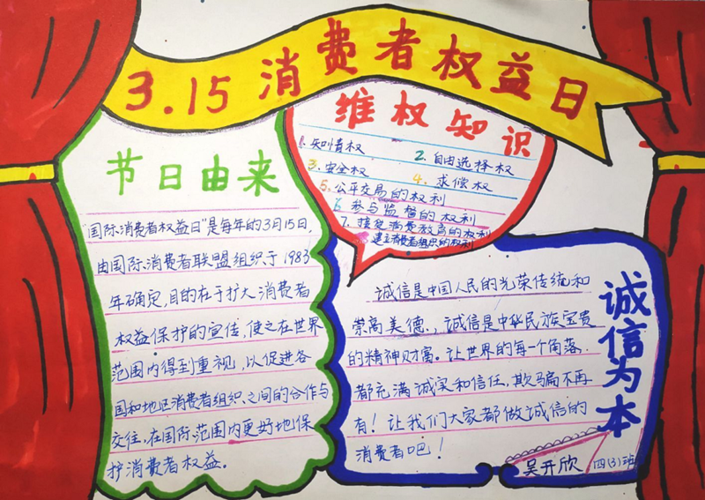 3.15消费者权益日
节日由来
"国际消费者权益日"是每年的3月15日,
由国际消费者联盟组织于1983
年确定,目的在于扩大消费者
权益保护的宣传,使之在世界
范围内得到重视,以促进各
国和地区消费者组织之间的合作与
交往,在国际范围内更好地保
护消费者权益。
维权知识
1.知情权 2.自由选择权
3.安全权 4.求偿权
5.公平交易的权利
6.参与监督的权利
7.接受消费教育的权利
8.建立消费者组织的权利
诚信为本
诚信是中国人民的光荣传统和
崇高美德.,诚信是中华民族宝贵
的精神财富。让世界的每一个角落.
都充满诚实和信任,欺骗不再
有!让我们大家都做诚信的
消费者吧!
吴开欣 四(3)班